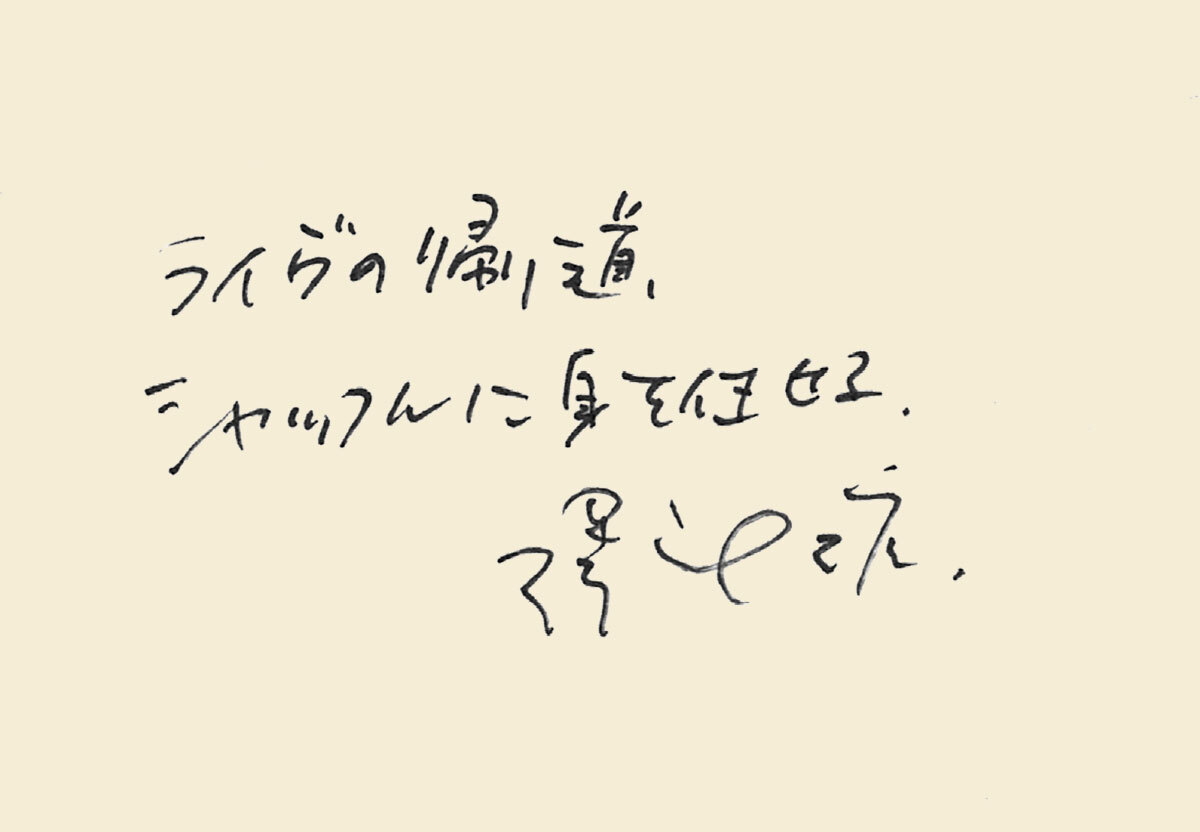 ライヴの帰り道、
シャッフルに身を任せる.